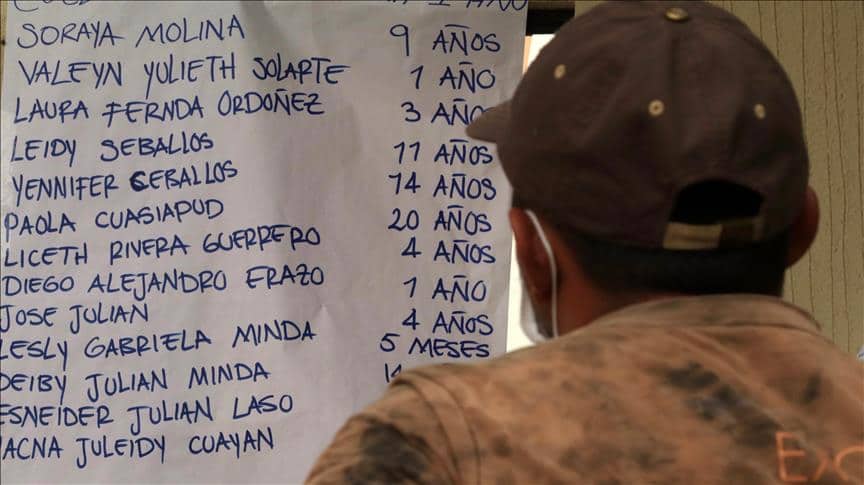 SORAYA MOLINA 9 AÑOS
VALEYN YULIETH SOLARTE 1 AÑO
LAURA FERNDA ORDOÑEZ 3 AÑO
LEIDY SEBALLOS 11 AÑOS
YENNIFER CEBALLOS 14 AÑOS
PAOLA CUASIAPUD 20 AÑOS
LICETH RIVERA GUERRERO 4 AÑOS
DIEGO ALEJANDRO ERAZO 1 AÑO
JOSE JULIAN 4 AÑOS
LESLY GABRIELA MINDA 5 MESES
DEIBY JULIAN MINDA
ESNEIDER JULIAN LASO
JULEIDY CUAYAN